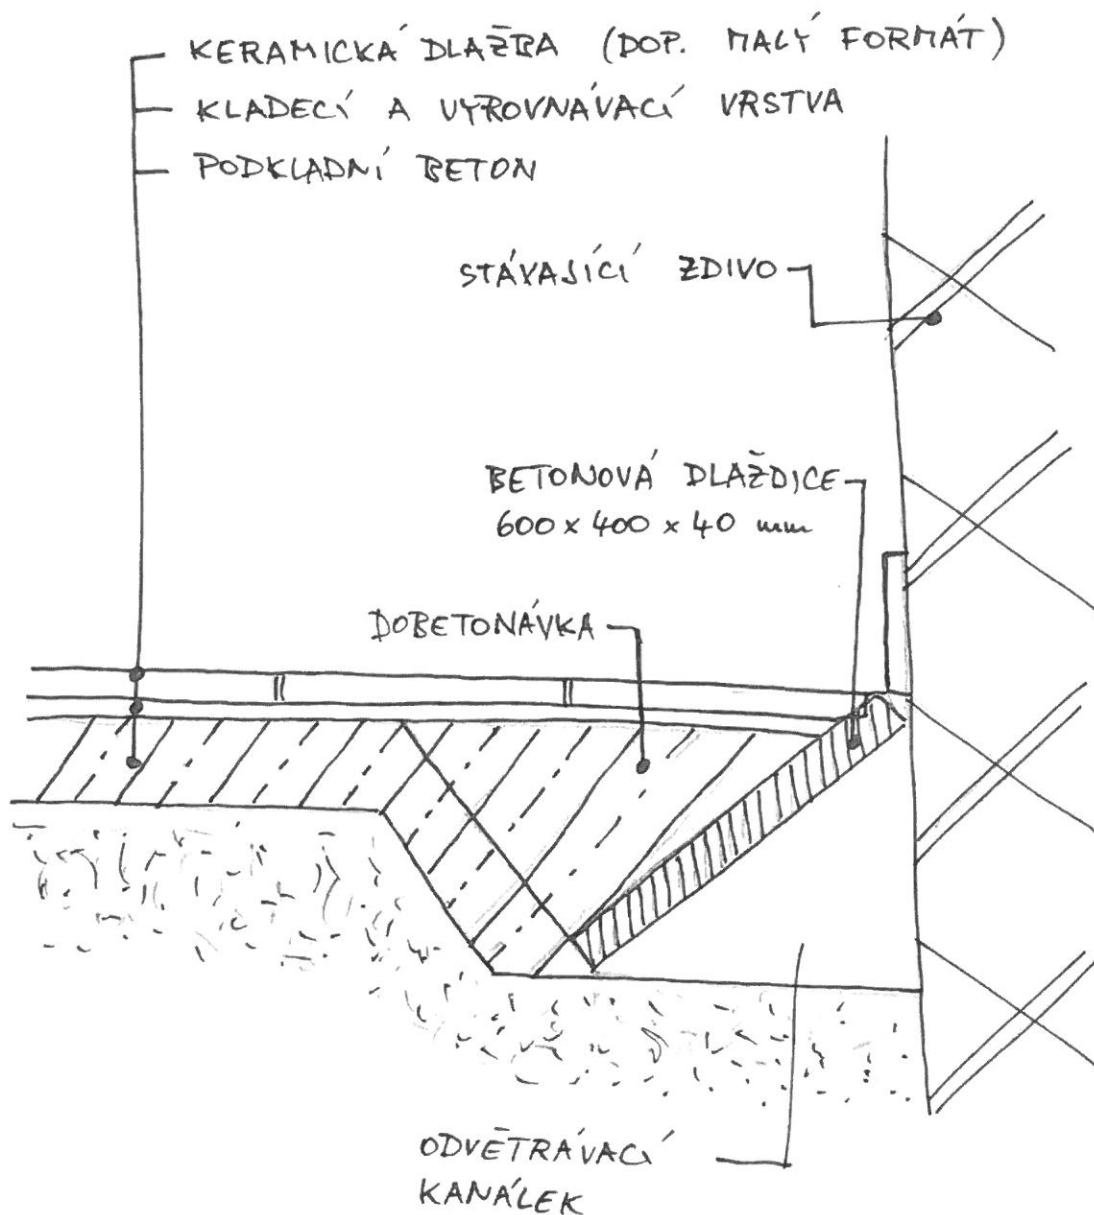 KERAMICKÁ DLAŽBA (DOP. MALÝ FORMÁT)
KLADECÍ A VYROVNÁVACÍ VRSTVA
PODKLADNÍ BETON
STÁVAJÍCÍ ZDIVO
BETONOVÁ DLAŽDICE
600 x 400 x 40 mm
DOBETONÁVKA
ODVĚTRÁVACÍ
KANÁLEK